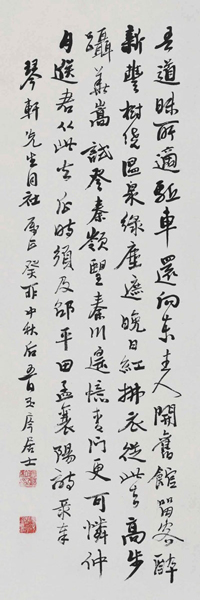 吾道昧所適驅車還向東主人開舊館留客醉
新豐樹繞溫泉綠塵遮晚日紅拂衣從此去高步
躡華嵩試登秦嶺望秦川遙憶青門更可憐仲
月送君從此去瓜時須及邵平田孟襄陽詩錄奉
琴軒先生同社屬正 癸酉中秋后五日玉居士